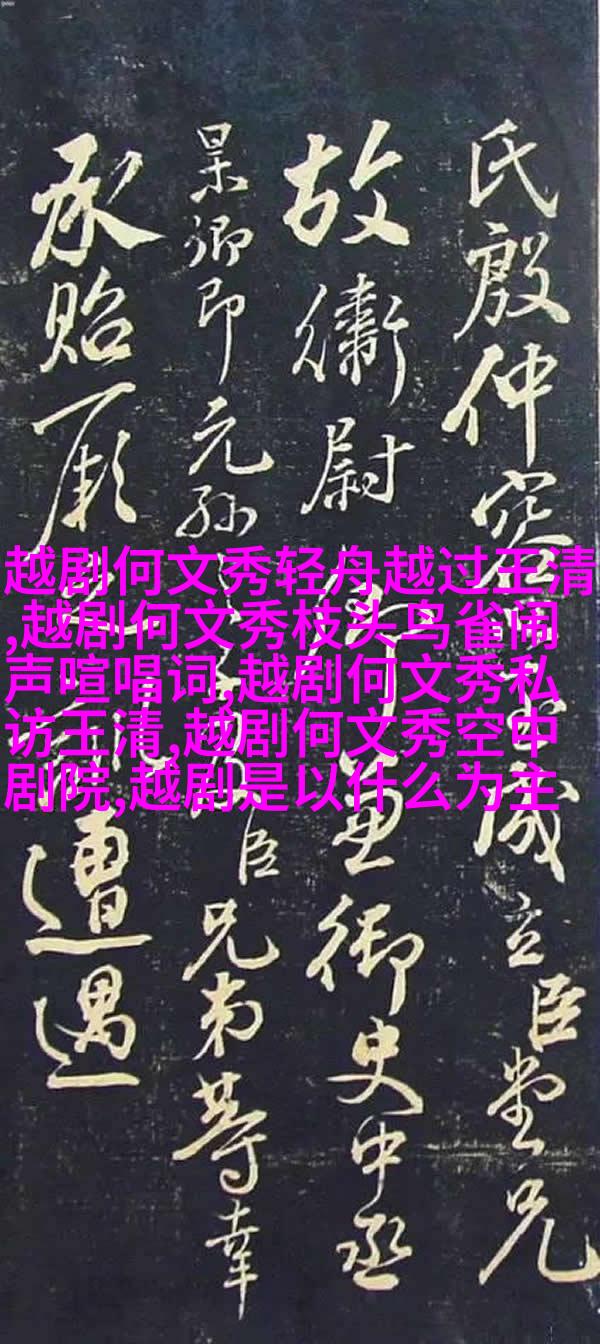 越剧何文秀轻舟越过王清
,越剧何文秀枝头鸟雀闹
声喧唱词,越剧何文秀私
访王清,越剧何文秀空中
剧院,越剧是以什么为主
氏殷仲容成立臣堂兄
故衛尉卿兼御史中丞
杲卿即元孫臣兄弟等幸
承貽厥遭遇